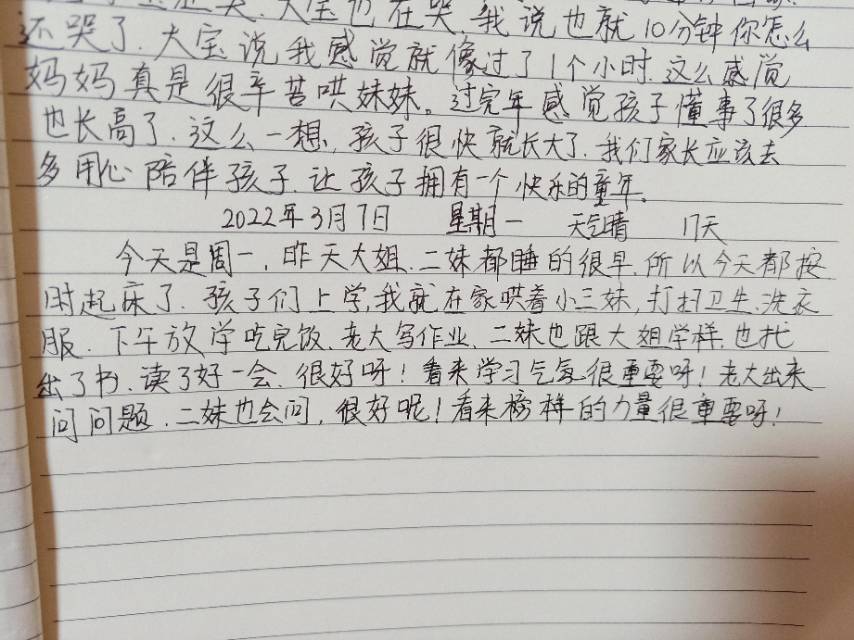 哭.大宝也在哭.我说也就10分钟你怎么
还哭了.大宝说我感觉就像过了1个小时.这么感觉
妈妈真是很辛苦哄妹妹。过完年感觉孩子懂事了很多
也长高了.这么一想,孩子很快就长大了.我们家长应该去
多用心陪伴孩子.让孩子拥有一个快乐的童年。
2022年3月7日 星期一 天气晴 17天
今天是周一,昨天大姐.二妹都睡的很早.所以今天都按
时起床了.孩子们上学,我就在家哄着小三妹,打扫卫生.洗衣
服.下午放学吃完饭.老大写作业.二妹也跟大姐学样.也找
出了书.读了好一会.很好呀!看来学习气氛很重要呀!老大出来
问问题.二妹也会问,很好呢!看来榜样的力量很重要呀!